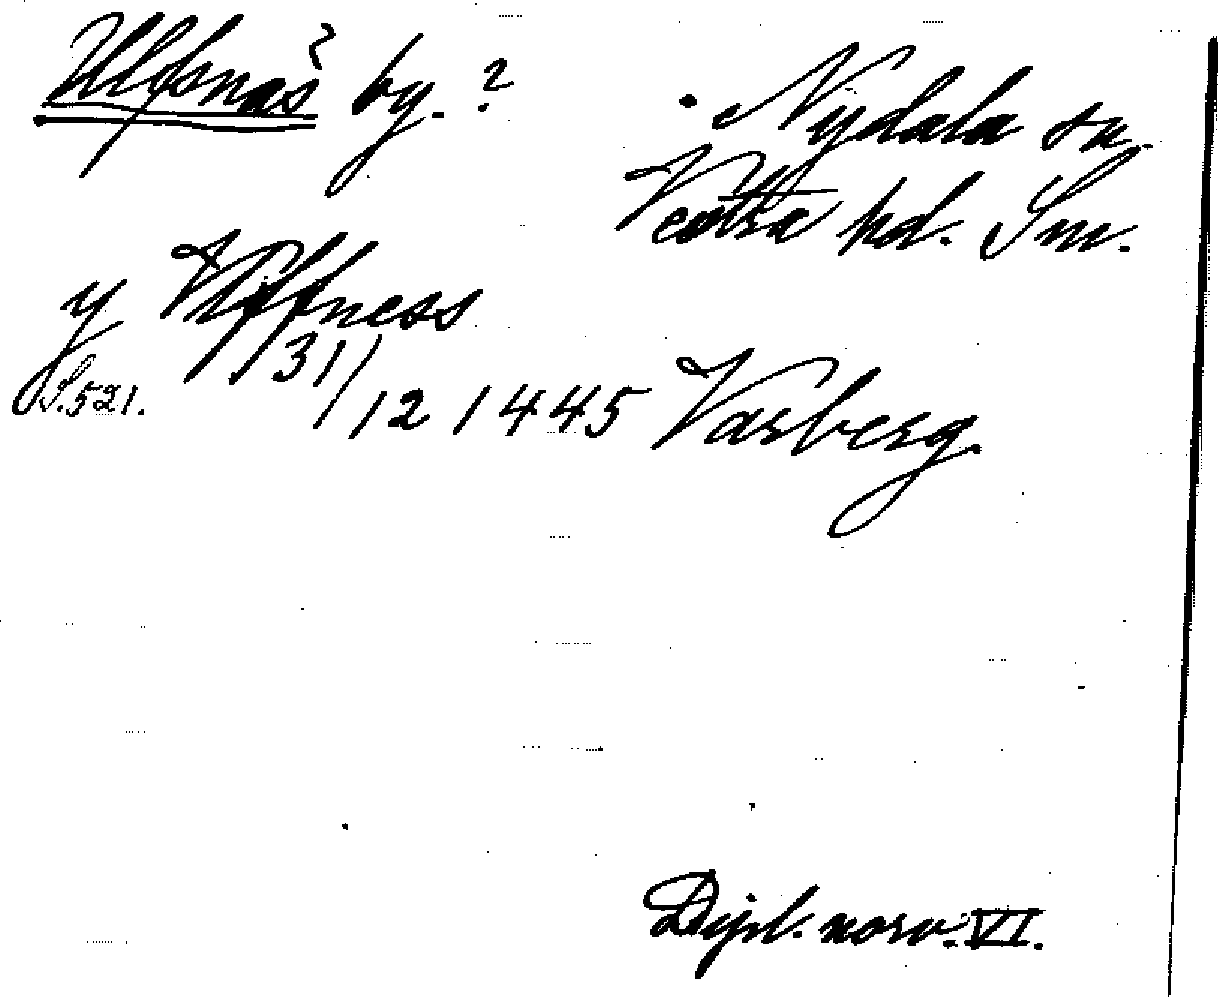 Ulfsnäs? by.?
Nydala sn.
Västra hd. Sm.
y Wlffness
S. 521.
31/12 1445 Varberg.
Dipl. norv. VI.